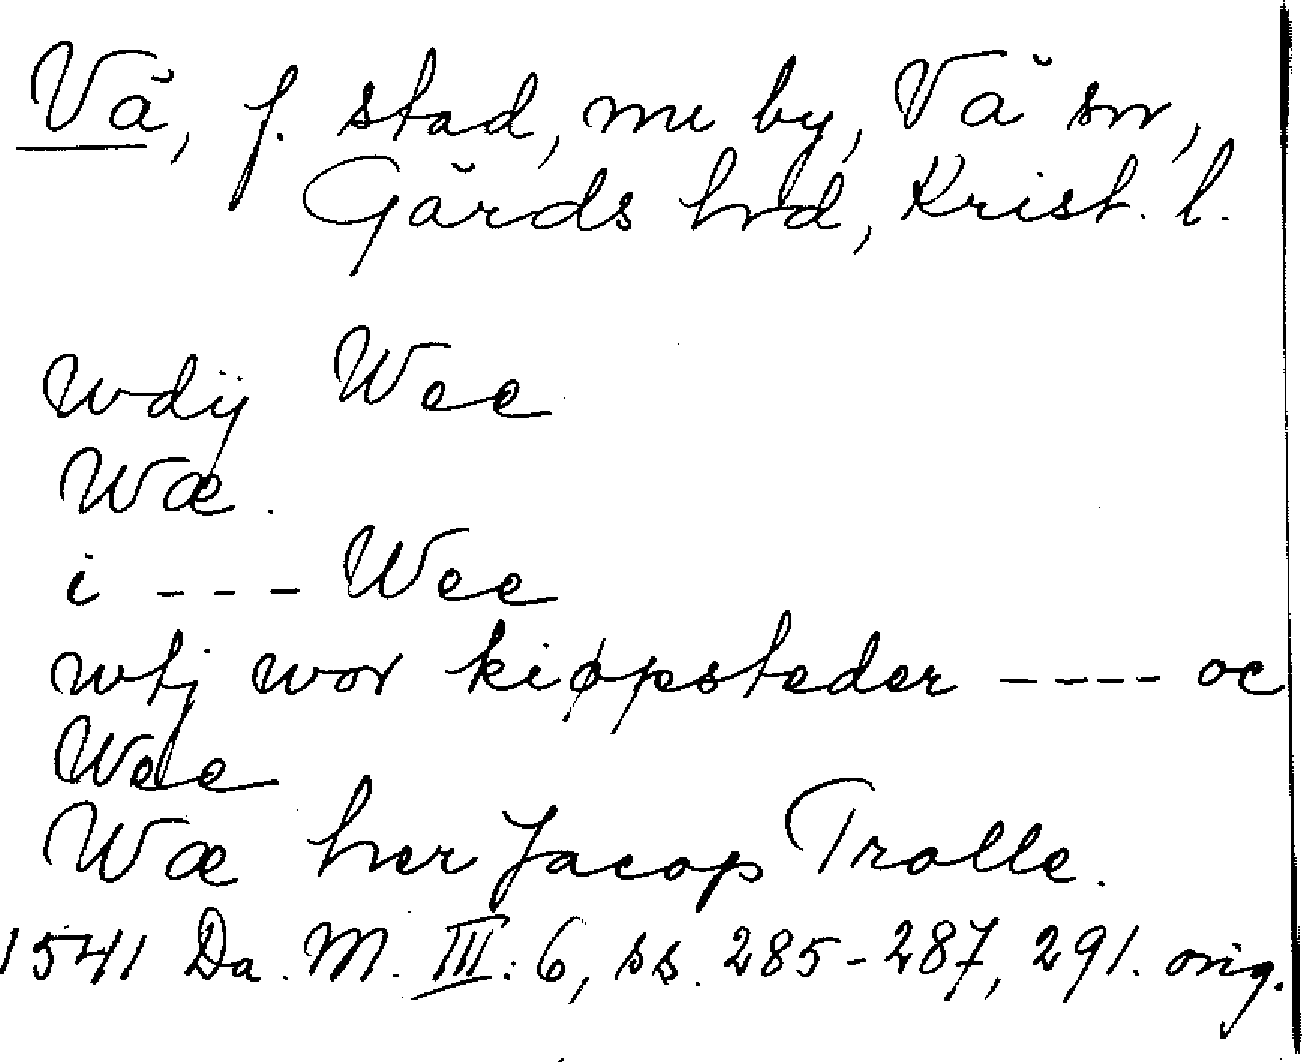 Vå, f. stad, nu by, Vå sn,
Gärds hrd, Krist. l.
wdij Wee
Wæ.
i --- Wee
wtj wor kiøpsteder ---- oc
Wee
Wæ her Jacop Trolle.
1541 Da. M. III: 6, ss. 285-287, 291. orig.